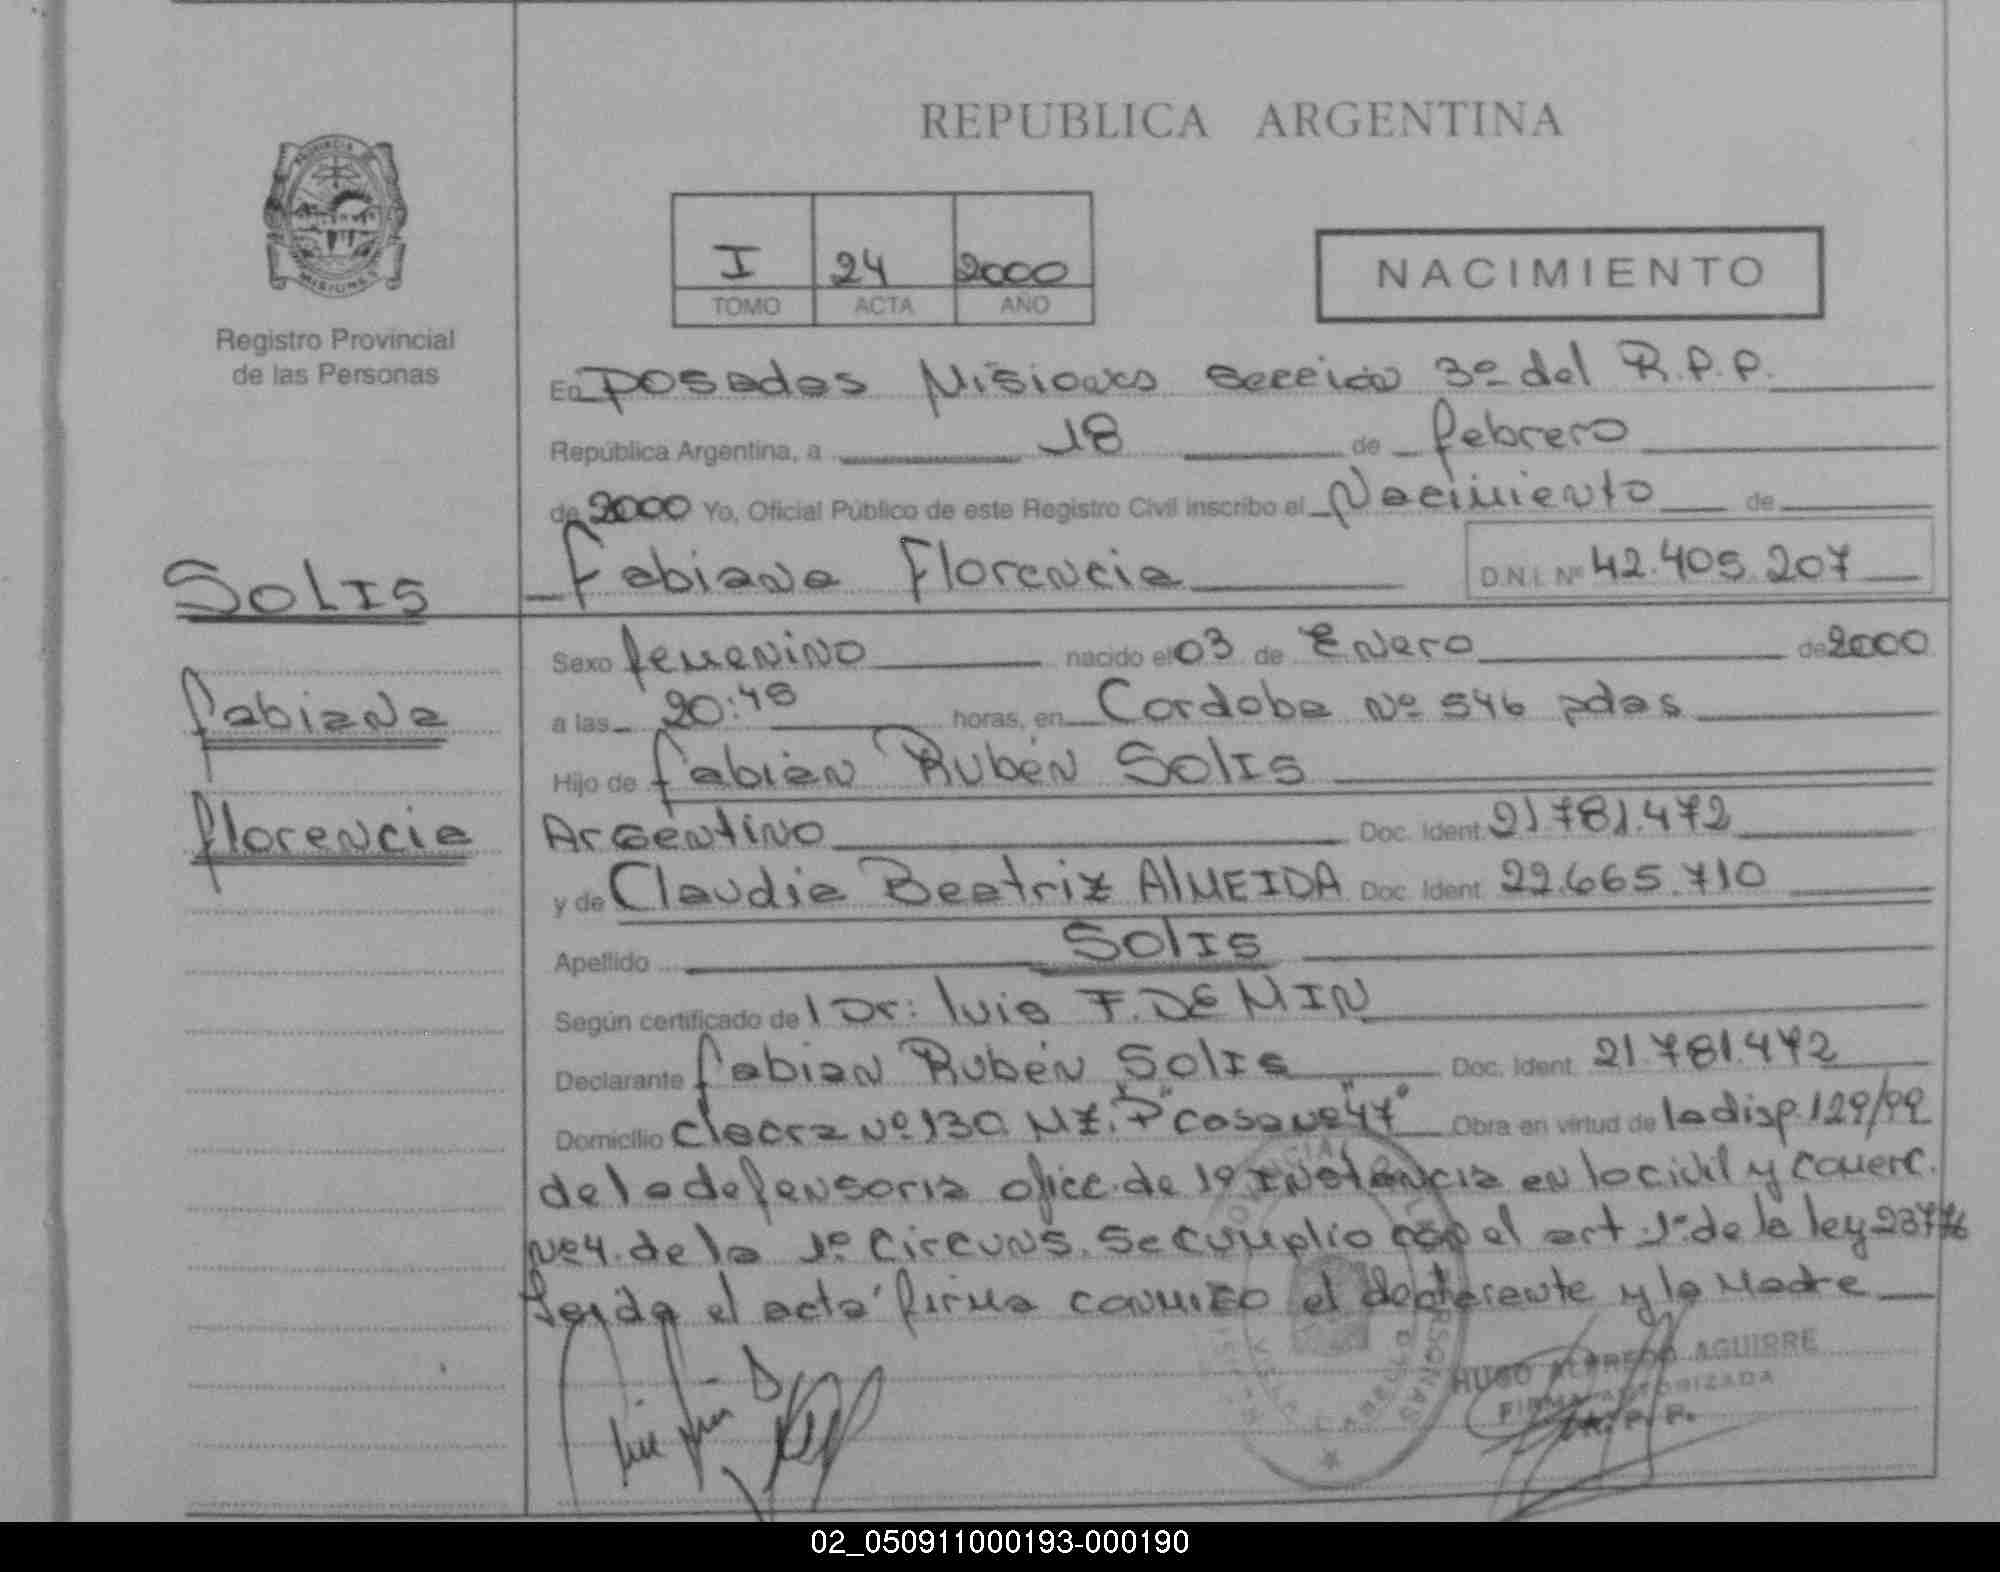 REPUBLICA ARGENTINA
I 24 2000
TOMO ACTA AÑO
NACIMIENTO
PROVINCIA DE MISIONES
Registro Provincial
de las Personas
En Posadas Misiones sección 3º del R.P.P.
República Argentina, a 18 de febrero
de 2000 Yo, Oficial Público de este Registro Civil inscribo el Nacimiento de
Fabiana Florencia D.N.I. Nº 42.405.207
SOLIS
Fabiana
Florencia
Sexo femenino nacido el 03 de Enero de 2000
a las 20:45 horas, en Cordoba Nº 546 pdas
Hijo de Fabián Rubén SOLIS
Argentino Doc. Ident. 21.781.472
y de Claudia Beatriz ALMEIDA Doc. Ident. 22.665.710
Apellido SOLIS
Según certificado del Dr: Luis F. DE MIN
Declarante Fabian Rubén SOLIS Doc. Ident. 21.781.472
Domicilio Chacra Nº 130 MZ. "P" casa Nº "47" Obra en virtud de la disp. 129/99
de la defensoria ofic. de 1º Instancia en lo civil y comerc.
Nº4. de la 1º Circuns. Se cumplio con el art. 1º de la ley 23776
Leida el acta firma conmigo el declarante y la Madre
HUGO ALFREDO AGUIRRE
FIRMA AUTORIZADA
R. P. P.
02_050911000193-000190